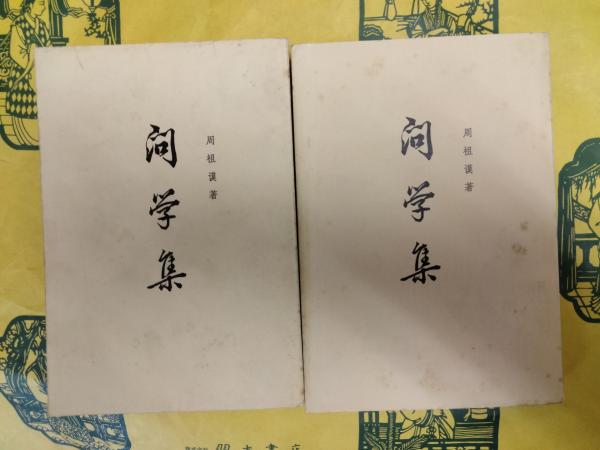 问学集
周祖谟著
问学集
周祖谟著
書店